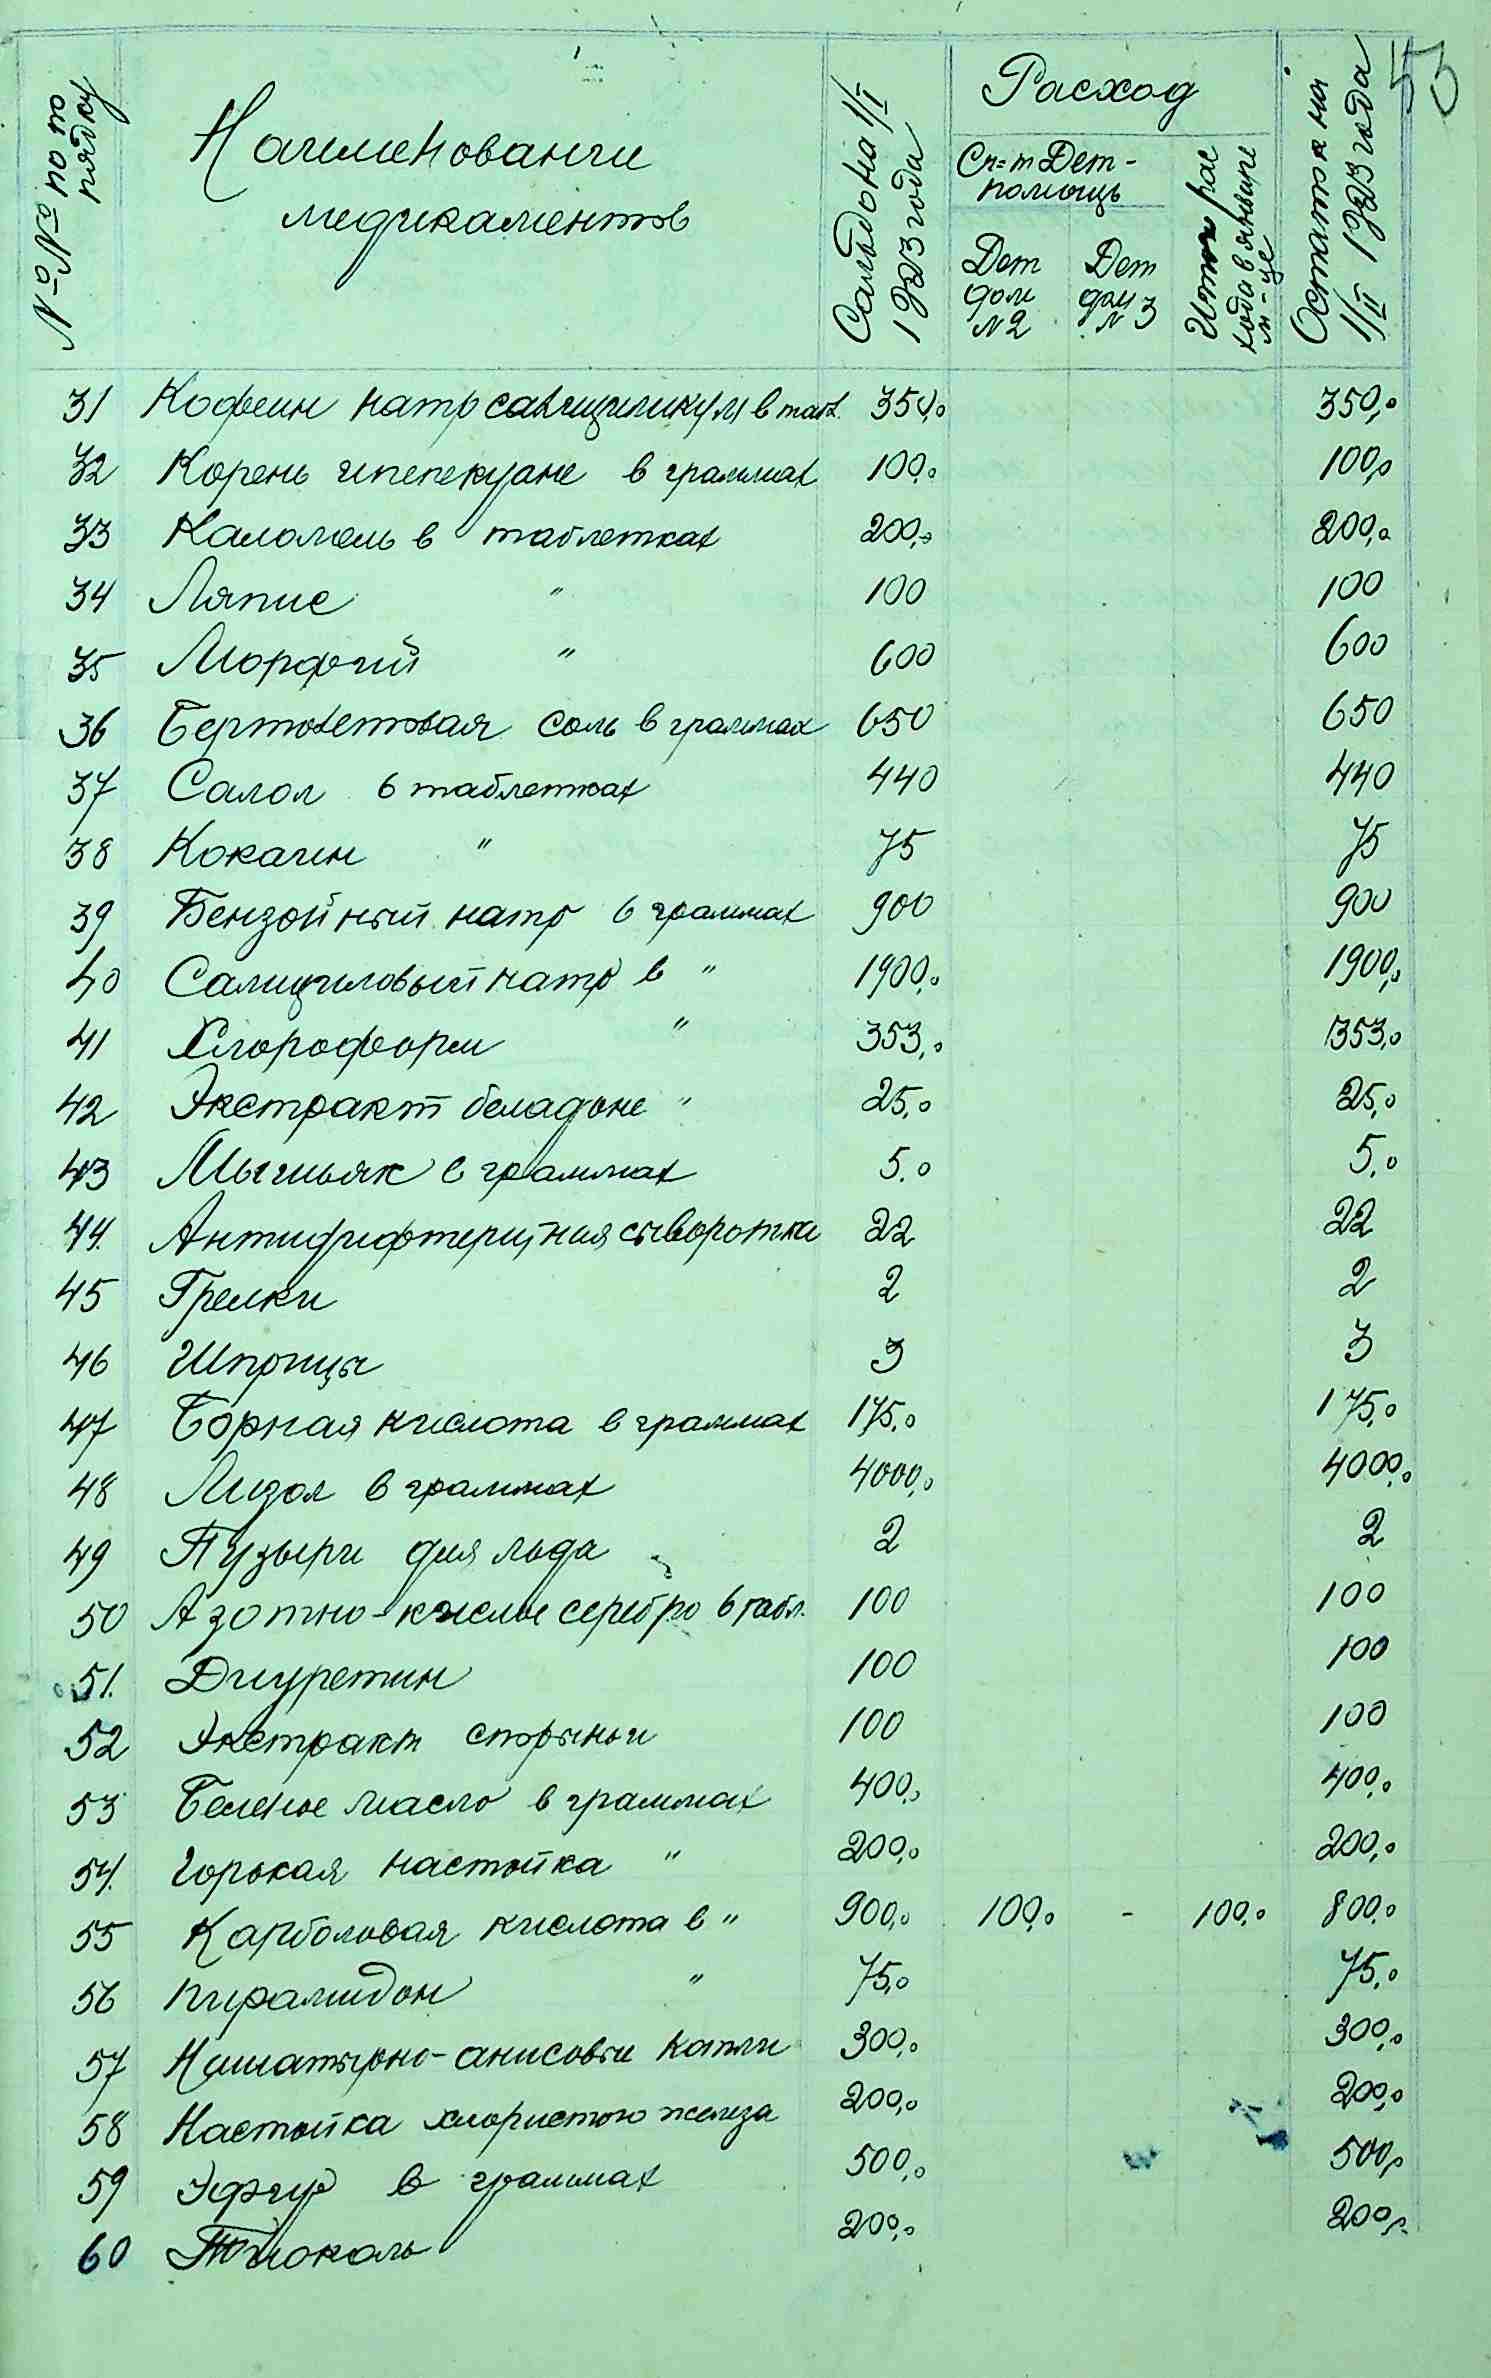 53
№№ по по
рядку
Наименование
медикаментов
Сальдо на 1/I
1923 года
Расход
Сп=т Дет-
помощь
Дет
дом
N 2
Дет
дом
N 3
Итого рас
хода в январе
м-це
Остаток на
1/II 1923 года
31 Кофеин натр салициликум в табл. 350,0 350,0
32 Корень ипепекуане в граммах 100,0 100,0
33 Каломель в таблетках 200,0 200,0
34 Ляпис " 100 100
35 Морфий " 600 600
36 Бертолетовая соль в граммах 650 650
37 Салол в таблетках 440 440
38 Кокаин " 75 75
39 Бензойный натр в граммах 900 900
40 Салициловый натр в " 1900,0 1900,0
41 Хлороформ " 353,0 353,0
42 Экстракт беладоне " 25,0 25,0
43 Мышьяк в граммах 5,0 5,0
44. Антидифтерит,ная сыворотка 22 22
45 Грелки 2 2
46 Шприцы 3 3
47 Борная кислота в граммах 175,0 175,0
48 Лизол в граммах 4000,0 4000,0
49 Пузыри для льда 2 2
50 Азотно-кислое серебро в табл. 100 100
51. Диуретин 100 100
52 Экстракт спорыньи 100 100
53 Беленое масло в граммах 400,0 400,0
54. Горькая настойка " 200,0 200,0
55 Карболовая кислота в " 900,0 100,0 - 100,0 800,0
56 Пирамидон " 75,0 75,0
57 Нашатырно-анисовые капли 300,0 300,0
58 Настойка хлористого железа 200,0 200,0
59 Эфир в граммах 500,0 500,0
60 Тиоколь 200,0 200,0